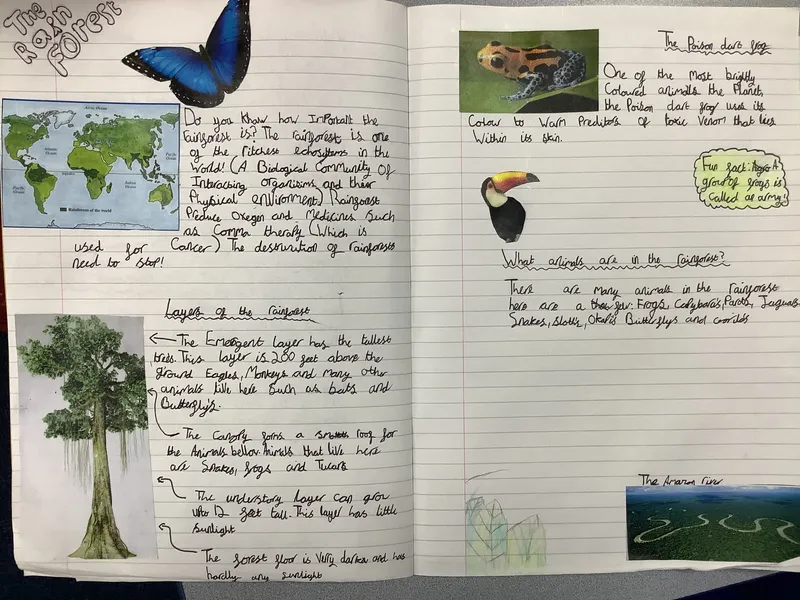 The
Rain
Forest
Do you know how important the
rainforest is? The rainforest is one
of the ritchest echosystems in the
World! (A Biological Community Of
Interacting organisms and their
Physical environment) Rainforest
Produce Oxegen and Medicines Such
as Comma therapy (Which is
used for Cancer) The destruction of rainforests
need to stop!
Arctic Ocean
Atlantic Ocean
Pacific Ocean
Pacific Ocean
Indian Ocean
Rainforests of the world
Layers of the rainforest
The Emergent layer has the tallest
trees. This layer is 200 feet above the
ground Eagles, Monkeys and many other
animals live here Such as bats and
Butterfly's.
The Canopy forms a roof for
the Animals bellow. Animals that live here
are Snakes, frogs and Tucans
The understory Layer can grow
upto 12 feet tall. This layer has little
sunlight
The forest floor is Verry darker and has
hardly any sunlight
The Poison dart frog
One of the most brightly
Coloured animals the Planet,
the Poison dart frog uses its
Colour to Warn Preditors of toxic Venom that lies
Within its skin.
Fun fact: A
group of frogs is
Called an army!
What animals are in the rainforest?
There are many animals in the rainforest
here are a few: Frogs, Capybara's, Parots, Jaguars
Snakes, sloths, Okapis Butterflys and
The Amazon river